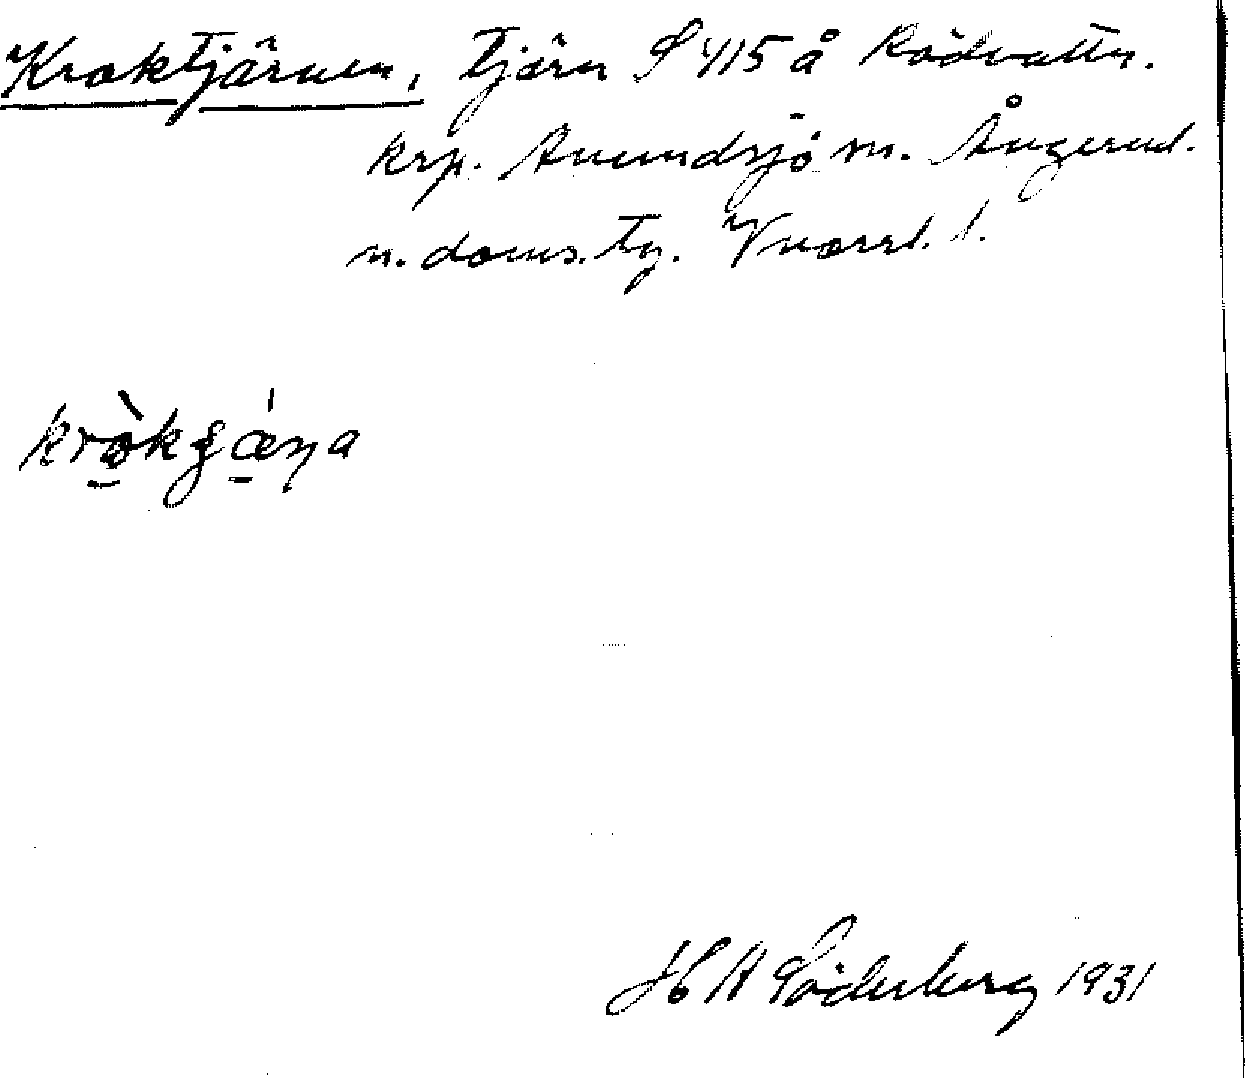 Kroktjärnen, Tjärn S 415 å Rödvattn.
krp. Anundsjö sn. Ångerml.
n. doms. Tg. Vnorrl. l.
kròkʂǽŋa
H A Söderberg 1931